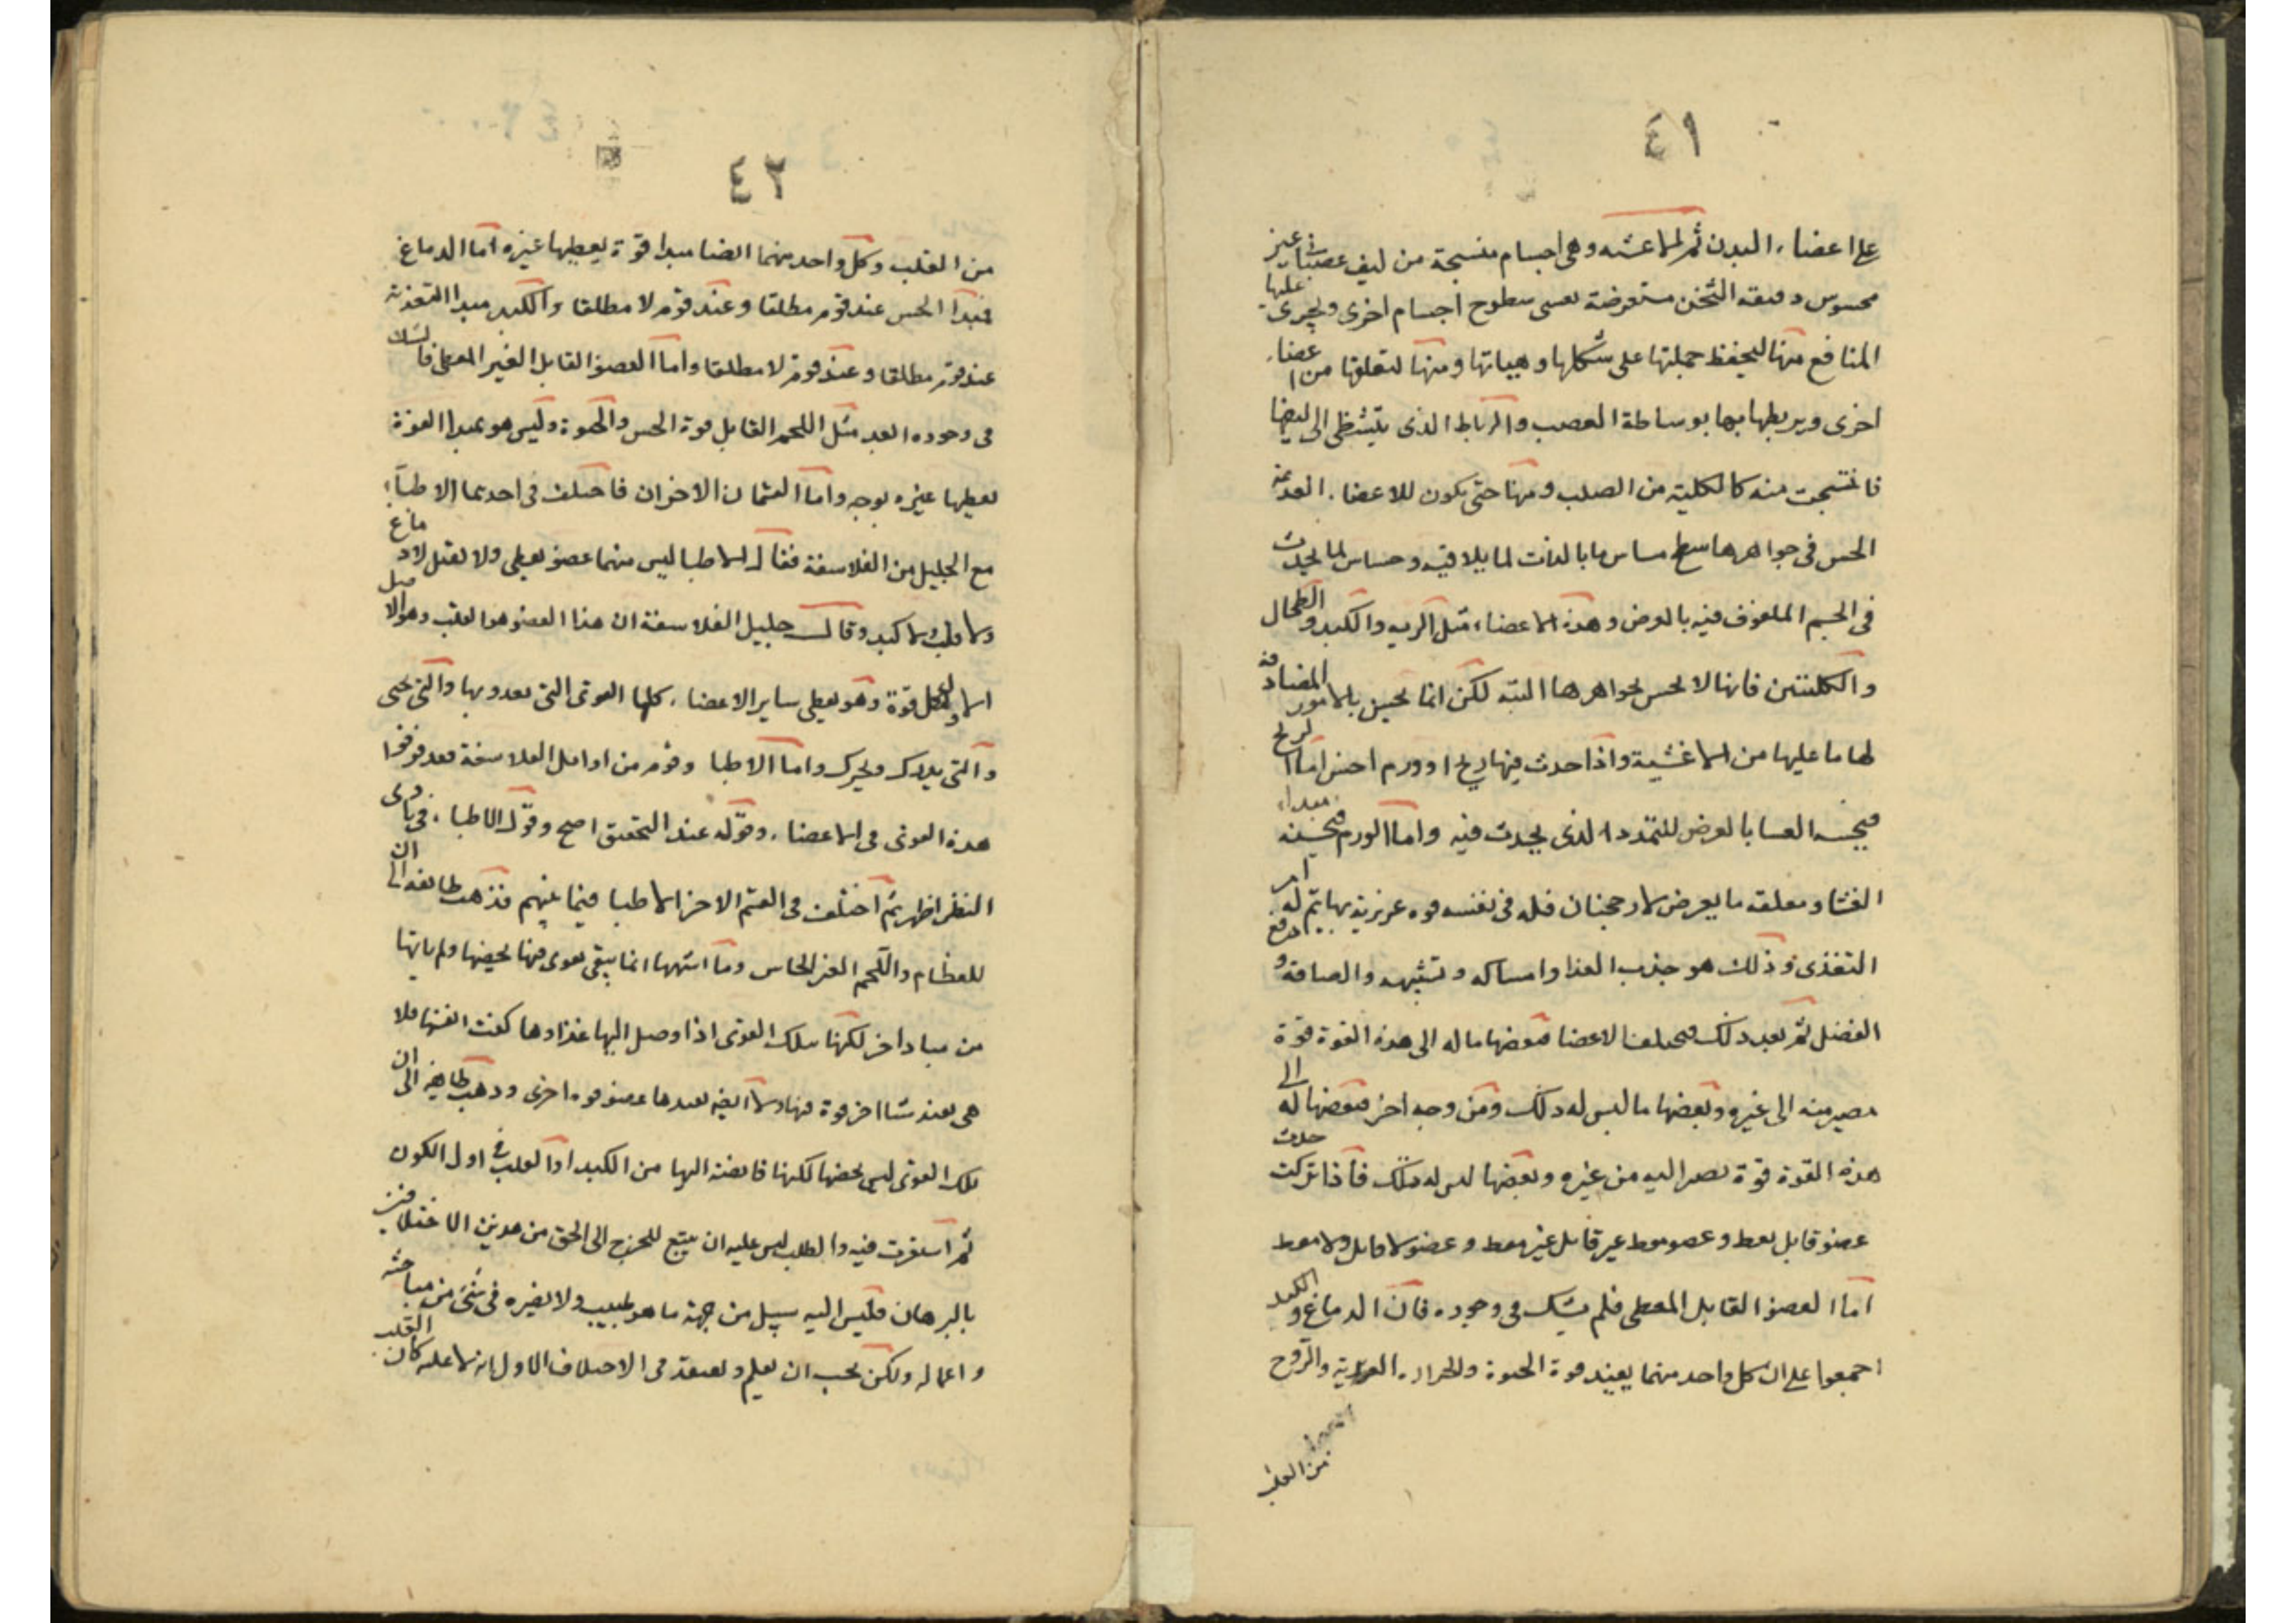 ٤١
على اعضاء البدن ثم الاغشية وهى اجسام منتسجة من ليف عصبانى غير
محسوس دقيقة الثخن مستعرضة تغشى سطوح اجسام اخرى ويجرى عليها
المنافع منها ليحفظ جملتها على شكلها وهيياتها ومنها لتعلقها من اعضاء
اخرى ويربطها بها بوساطة العصب والرباط الذى يتشظى الى ليفها
فانتسجت منه كالكلية من الصلب ومنها حتى يكون للاعضاء العديمة
الحس فى جواهرها سطح حساس بالذات لما يلاقيه وحساس لما يحدث
فى الجسم الملفوف فيه بالعرض وهذه الاعضاء مثل الريه والكبد والطحال
والكليتين فانها لا تحس بجواهرها البته لكن انما تحس بالامور المضادة
لها ما عليها من الاغشية واذا حدث فيها ريح او ورم احس اما الريح
فيحسه الغشا بالعرض للتمدد الذى يحدث فيه واما الورم فيحسه مبداء
الغشا ومعلقه بالعرض لارجحنان فله فى نفسه قوه غريزية بها يتم له امر
التغذى وذلك هو جذب الغذا وامساكه وتشبيهه والصاقه ودفع
الفضل ثم بعد ذلك تختلف الاعضا فبعضها ما له الى هذه القوة قوة
تصير منه الى غيره وبعضها ما ليس له ذلك ومن وجه اخر فبعضها له الى
هذه القوة قوة تصير اليه من غيره وبعضها ليس له تلك فاذا تركبت حدث
عضو قابل معط وعضو معط غير قابل وعضو قابل غير معط وعضو لا قابل ولا معط
اما العضو القابل المعطى فلم يشك فى وجوده فان الدماغ والكبد
اجمعوا على ان كل واحد منهما يقبل قوة الحيوة والحرارة الغريزية والروح
من القلب
٤٢
من القلب وكل واحد منهما ايضا مبدا قوة يعطيها غيره اما الدماغ
فمبدا الحس عند قوم مطلقا وعند قوم لا مطلقا والكبد مبدا التغذية
عند قوم مطلقا وعند قوم لا مطلقا واما العضو القابل الغير المعطى فالشك
فى وجوده ابعد مثل اللحم القابل قوة الحس والحيوة وليس هو مبدا القوة
يعطيها غيره بوجه واما القسمان الاخران فاختلف فى احدهما الاطباء
مع الجليل من الفلاسفة فقال الاطبا ليس منهما عضو يعطى ولا يقبل لا دماغ
ولا قلب ولا كبد وقال جليل الفلاسفة ان هذا العضو هو القلب وهو الاصل
الاول لكل قوة وهو يعطى ساير الاعضاء كلها القوى التى تغدو بها والتى تحيى
والتى يدرك ويحرك واما الاطبا وقوم من اوايل الفلاسفة فقد فرقوا
هذه القوى فى الاعضاء وقوله عند التحقيق اصح وقول الاطباء فى بادى
النظر اظهر ثم اختلف فى القسم الاخر الاطبا فيما بينهم فذهب طايفة الى ان
للعظام واللحم الغير الحاس وما اشبهها انما يبقى بقوى فيها يخصها ولم ياتها
من مباد اخر لكنها بتلك القوى اذا وصل اليها غذاوها كفت انفسها فلا
هى تفيد شيا اخر قوة فيها ولا ايضا يفيدها عضو قوه اخرى وذهب طايفة الى ان
تلك القوى ليس يخصها لكنها فايضة اليها من الكبد او القلب فى اول الكون
ثم استقرت فيه والطبيب ليس عليه ان يتتبع المخرج الى الحق من هذين الاختلافين
بالبرهان فليس اليه سبيل من جهة ما هو طبيب ولا يضره فى شى من مباحثه
واعماله ولكن يجب ان يعلم ويعتقد فى الاختلاف الاول انه لا عليه كان القلب